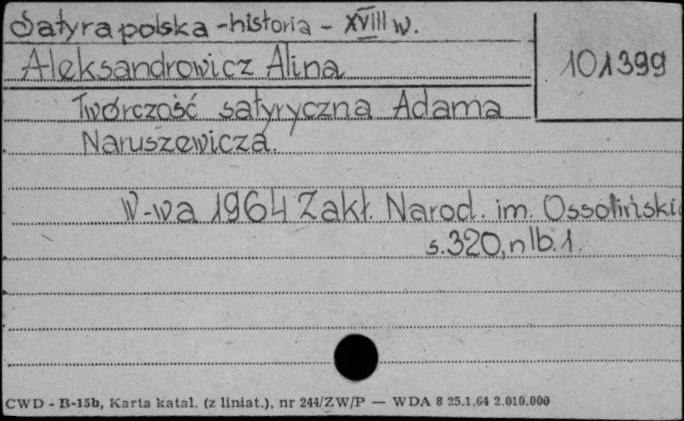 Satyra polska - historia - XVIII w.
Aleksandrowicz Alina
101399
Twórczość satyryczna Adama
Naruszewicza.
W-wa 1964 Zakł. Narod. im. Ossolińskic
s. 320, nlb. 1.
CWD - B-15b, Karta katal. (z liniat.), nr 244/ZW/P — WDA 8 25.1.64 2.010.000